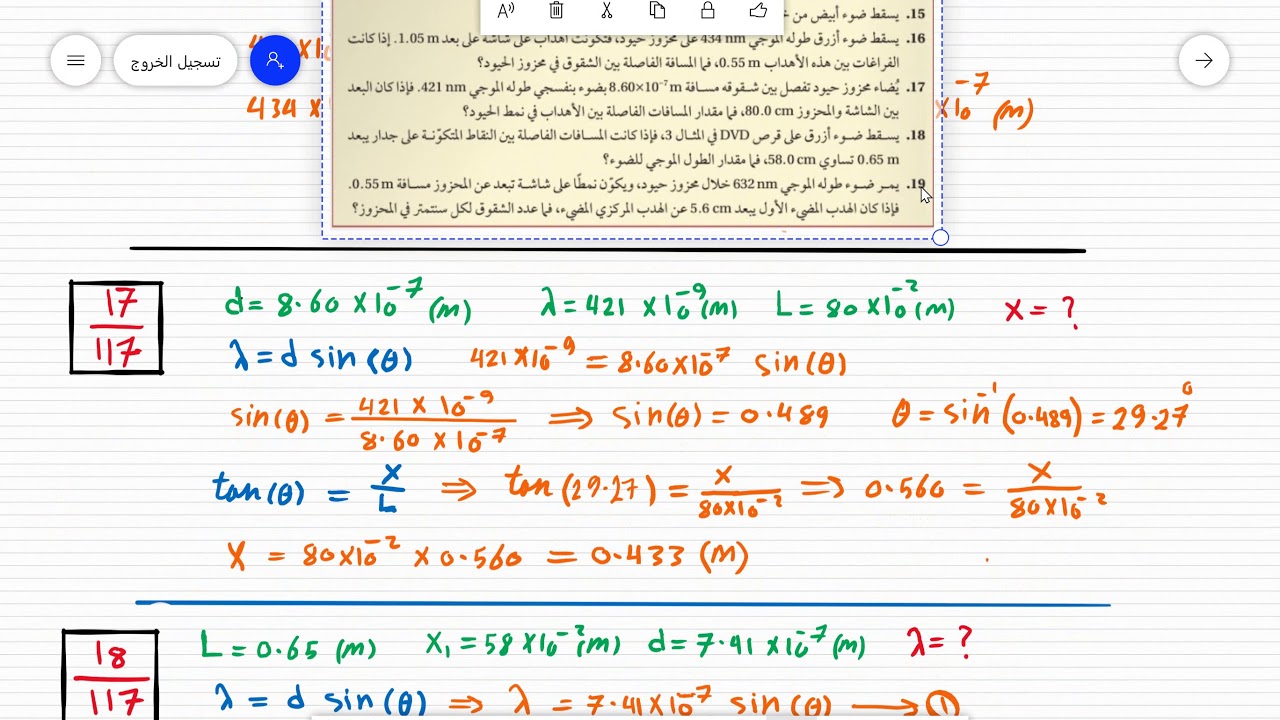 15. يسقط ضوء أبيض من
16. يسقط ضوء أزرق طوله الموجي 434 nm على محزوز حيود، فتكونت أهداب على شاشة على بعد 1.05 m. إذا كانت
الفراغات بين هذه الأهداب 0.55 m، فما المسافة الفاصلة بين الشقوق في محزوز الحيود؟
17. يُضاء محزوز حيود تفصل بين شقوقه مسافة 8.60×10⁻⁷ m بضوء بنفسجي طوله الموجي 421 nm. فإذا كان البعد
بين الشاشة والمحزوز 80.0 cm، فما مقدار المسافات الفاصلة بين الأهداب في نمط الحيود؟
18. يسقط ضوء أزرق على قرص DVD في المثال 3، فإذا كانت المسافات الفاصلة بين النقاط المتكوّنة على جدار يبعد
0.65 m تساوي 58.0 cm، فما مقدار الطول الموجي للضوء؟
19. يمر ضوء طوله الموجي 632 nm خلال محزوز حيود، ويكوّن نمطًا على شاشة تبعد عن المحزوز مسافة 0.55 m.
فإذا كان الهدب المضيء الأول يبعد 5.6 cm عن الهدب المركزي المضيء، فما عدد الشقوق لكل سنتمتر في المحزوز؟
تسجيل الخروج
434 x
x10⁻⁷ (m)
17/117
d = 8.60 x10⁻⁷ (m) λ = 421 x10⁻⁹ (m) L = 80 x10⁻² (m) x = ?
λ = d sin (θ) 421 x10⁻⁹ = 8.60 x10⁻⁷ sin (θ)
sin (θ) = 421 x 10⁻⁹ / 8.60 x 10⁻⁷ ⇒ sin (θ) = 0.489 θ = sin⁻¹ (0.489) = 29.27⁰
tan (θ) = x/L ⇒ tan (29.27) = x / 80x10⁻² ⇒ 0.560 = x / 80x10⁻²
x = 80x10⁻² x 0.560 = 0.433 (m)
18/117
L = 0.65 (m) x₁ = 58 x10⁻² (m) d = 7.41 x10⁻⁷ (m) λ = ?
λ = d sin (θ) ⇒ λ = 7.41x10⁻⁷ sin (θ) → ①